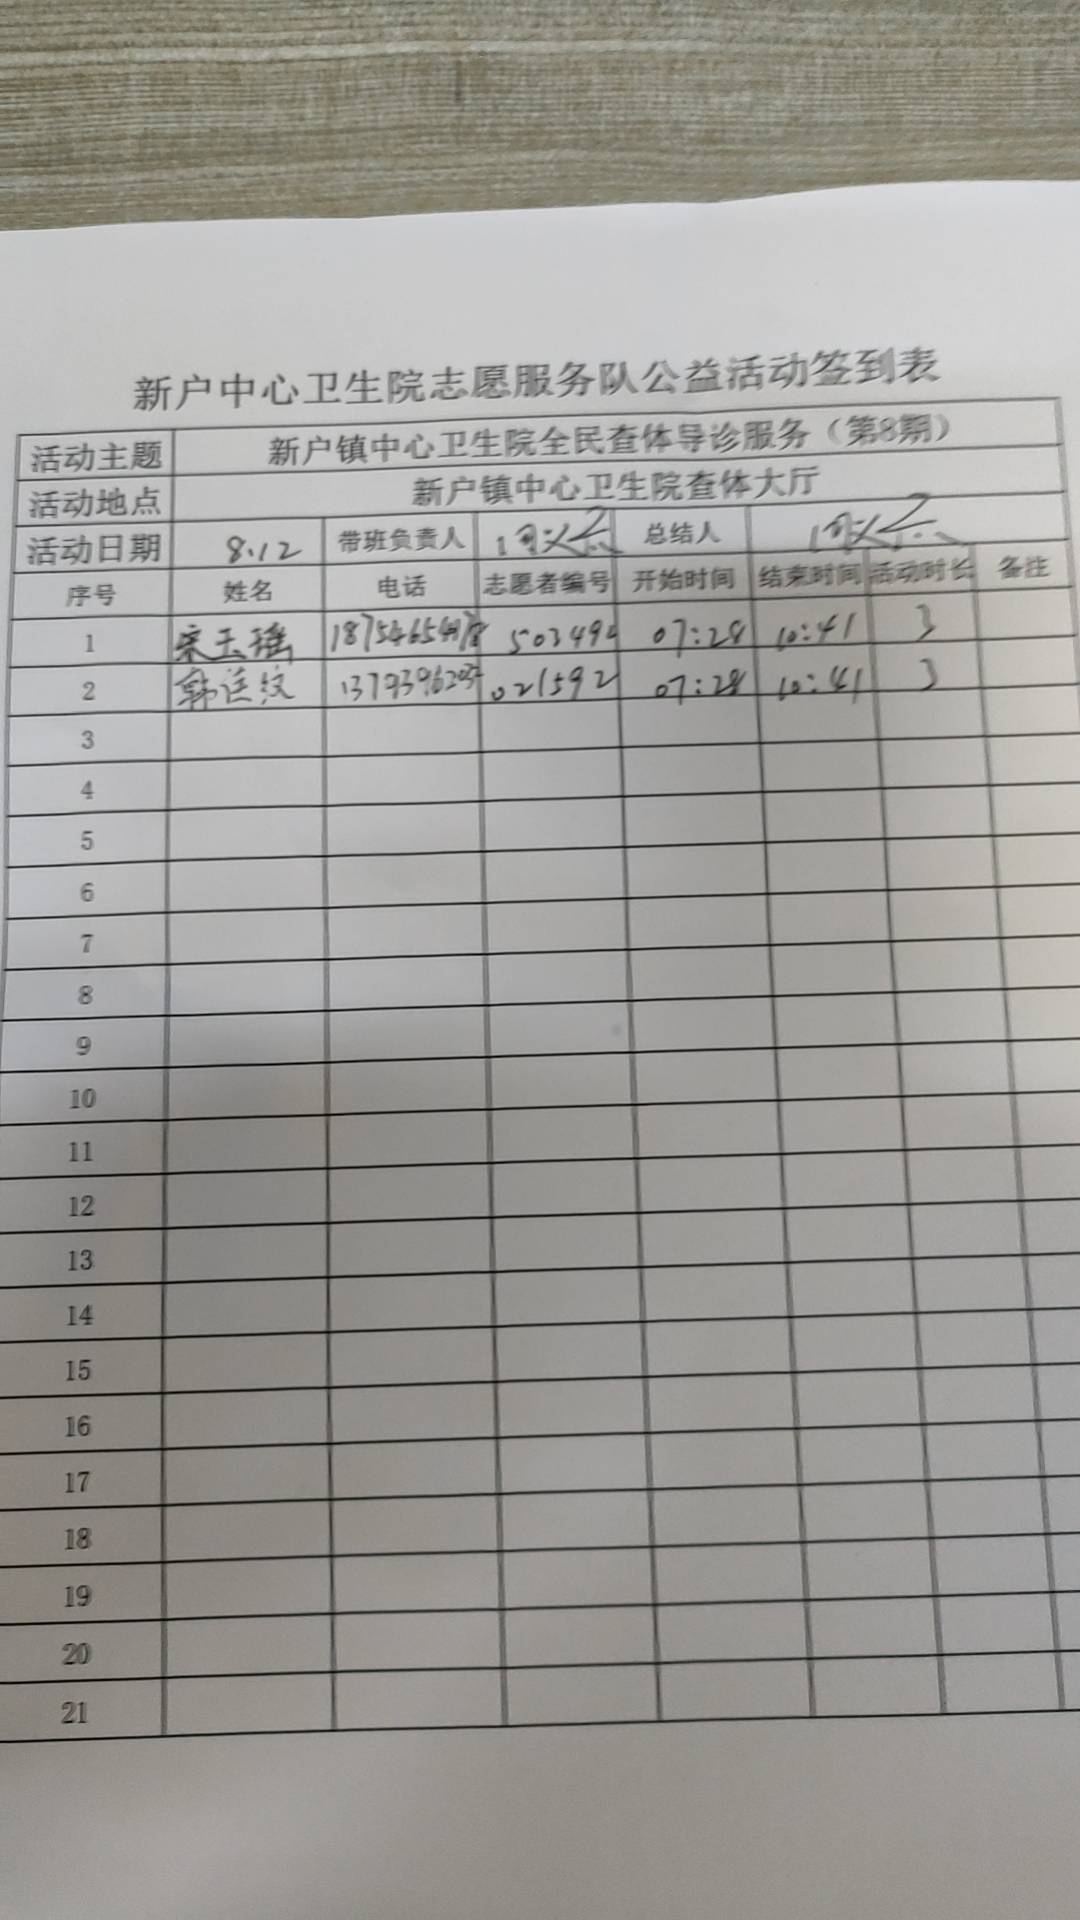 新户中心卫生院志愿服务队公益活动签到表
活动主题 新户镇中心卫生院全民查体导诊服务（第8期）
活动地点 新户镇中心卫生院查体大厅
活动日期 8.12 带班负责人 总结人
序号 姓名 电话 志愿者编号 开始时间 结束时间 活动时长 备注
1 宋玉瑶 07:28 10:41 3
2 021592 07:28 10:41 3
3
4
5
6
7
8
9
10
11
12
13
14
15
16
17
18
19
20
21